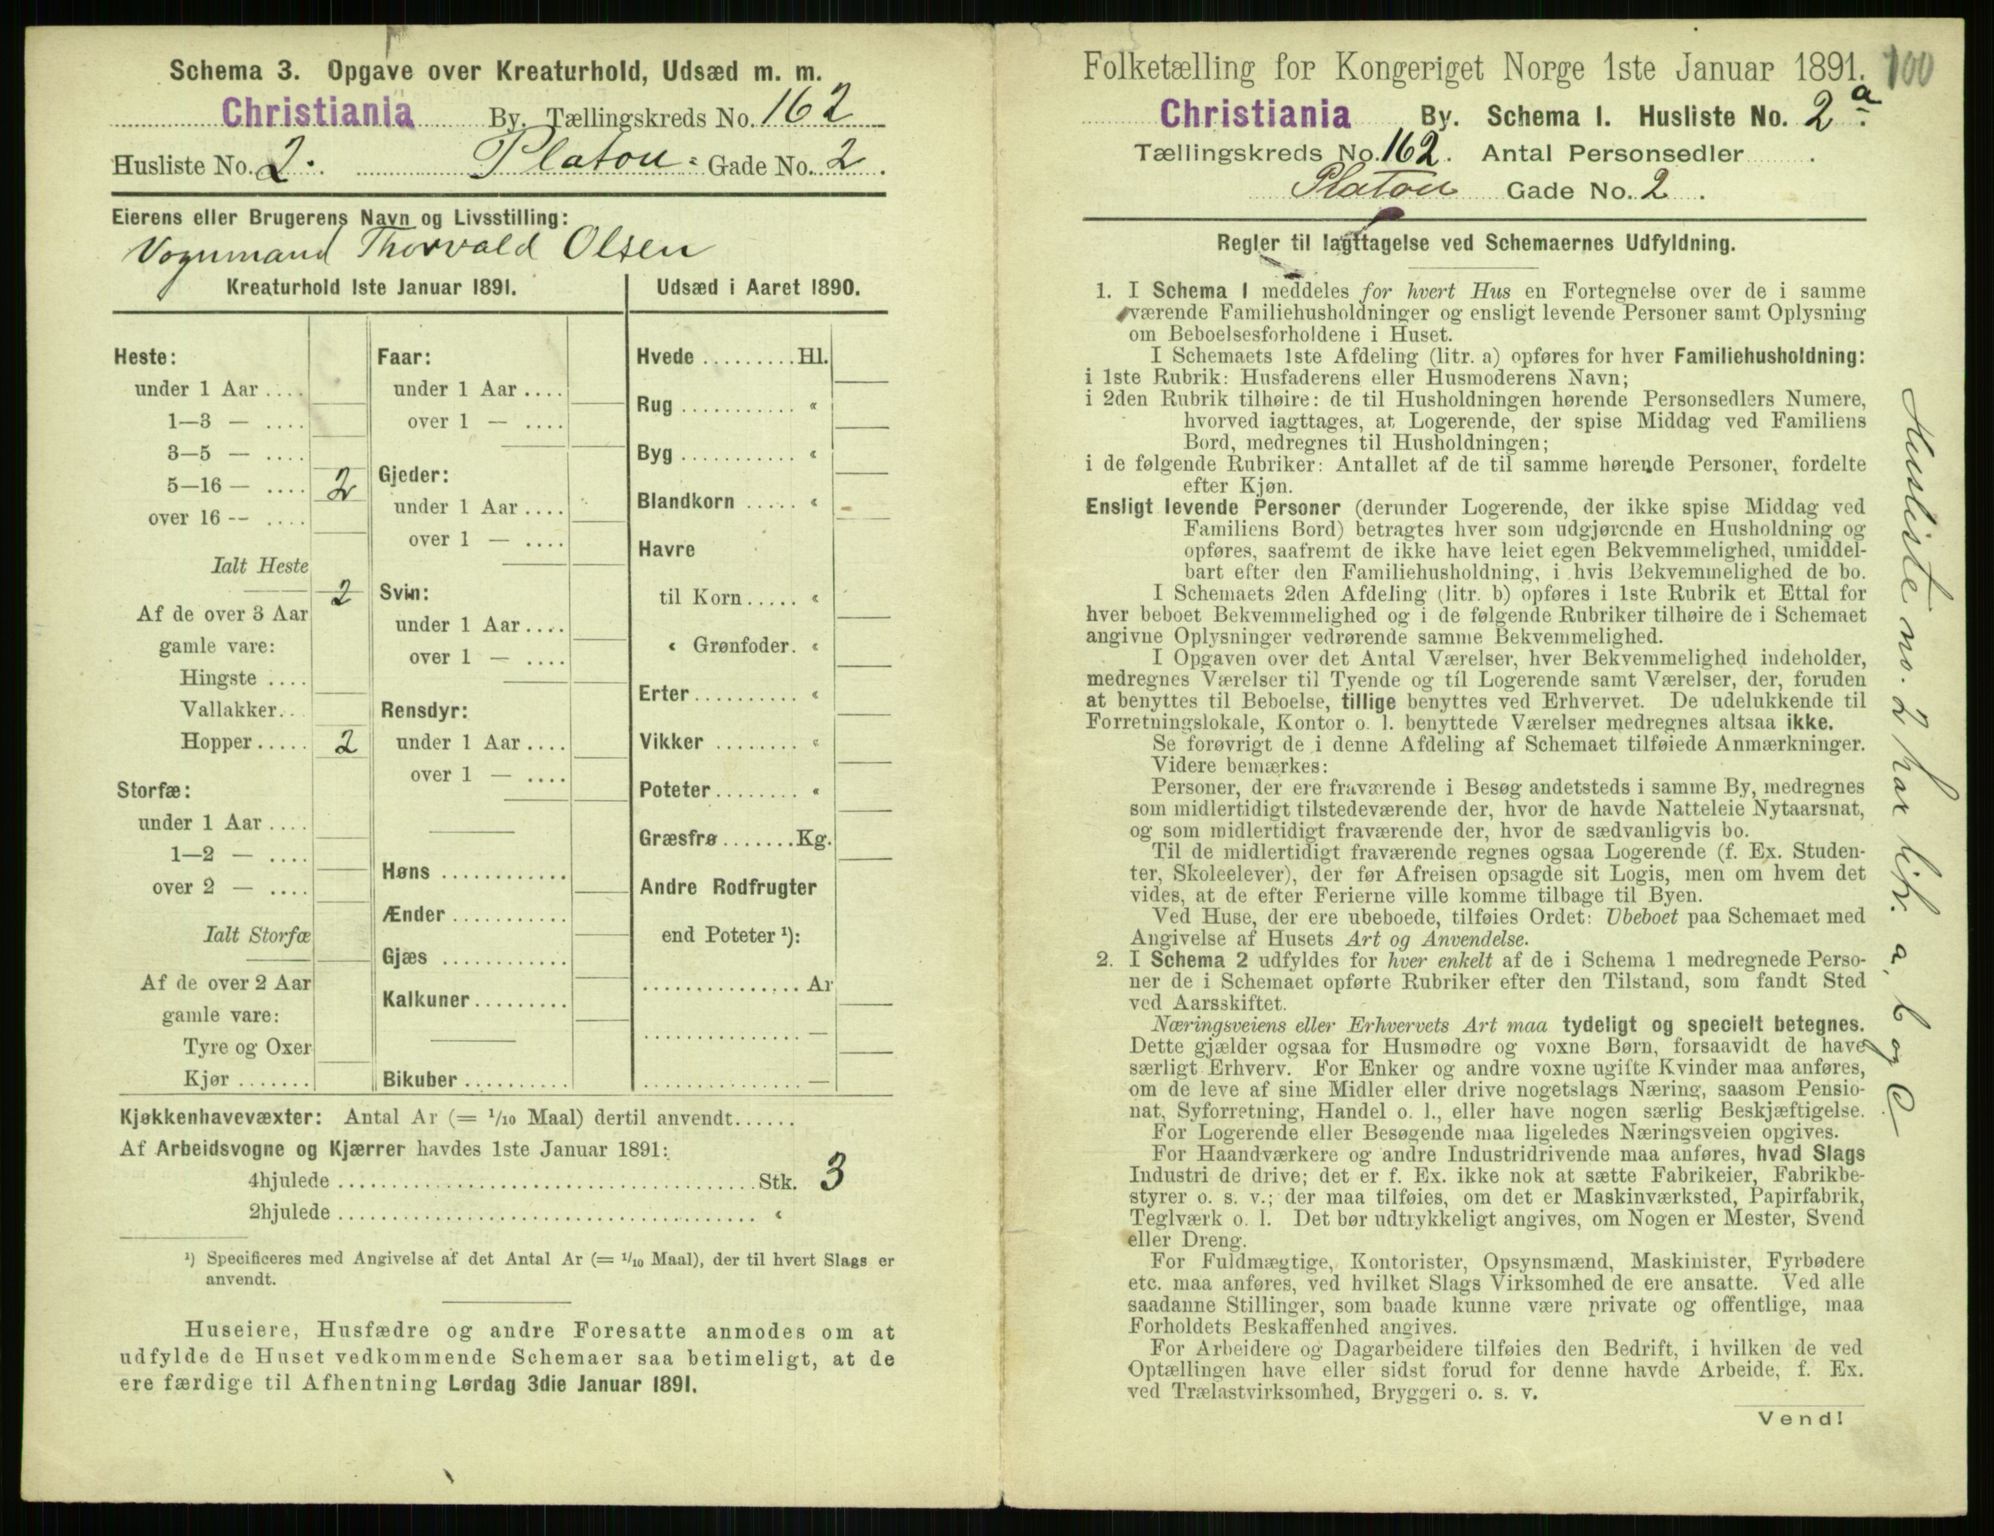 Schema 3. Opgave over Kreaturhold, Udsæd m. m.
Christiania By. Tællingskreds No. 162
Husliste No. 2. Platou- Gade No. 2.
Eierens eller Brugerens Navn og Livsstilling:
Vognmand Thorvald Olsen
Kreaturhold 1ste Januar 1891.
Heste:
under 1 Aar ....
1—3 — ....
3—5 — ....
5—16 — .... 2
over 16 -- ....
Ialt Heste 2
Af de over 3 Aar
gamle vare:
Hingste ....
Vallakker..
Hopper..... 2
Storfæ:
under 1 Aar ....
1—2 — ....
over 2 — ....
Ialt Storfæ
Af de over 2 Aar
gamle vare:
Tyre og Oxer
Kjør .......
Faar:
under 1 Aar ....
over 1 — ....
Gjeder:
under 1 Aar ....
over 1 — ....
Svin:
under 1 Aar ....
over 1 — ....
Rensdyr:
under 1 Aar ....
over 1 — ....
Høns ............
Ænder ...........
Gjæs ............
Kalkuner.........
Bikuber ..........
Udsæd i Aaret 1890.
Hvede .........Hl.
Rug ........... «
Byg ........... «
Blandkorn ..... «
Havre
til Korn..... «
« Grønfoder. «
Erter.......... «
Vikker ........ «
Poteter........ «
Græsfrø .......Kg.
Andre Rodfrugter
end Poteter ¹):
............... Ar
............... —
............... —
Kjøkkenhavevæxter: Antal Ar (= 1/10 Maal) dertil anvendt......
Af Arbeidsvogne og Kjærrer havdes 1ste Januar 1891:
4hjulede ........................................Stk. 3
2hjulede ........................................ «
¹) Specificeres med Angivelse af det Antal Ar (= 1/10 Maal), der til hvert Slags er
anvendt.
Huseiere, Husfædre og andre Foresatte anmodes om at
udfylde de Huset vedkommende Schemaer saa betimeligt, at de
ere færdige til Afhentning Lørdag 3die Januar 1891.
Folketælling for Kongeriget Norge 1ste Januar 1891. 100
Christiania By. Schema I. Husliste No. 2 a.
Tællingskreds No. 162. Antal Personsedler .
Platou Gade No. 2 .
Regler til Iagttagelse ved Schemaernes Udfyldning.
1. I Schema 1 meddeles for hvert Hus en Fortegnelse over de i samme
værende Familiehusholdninger og ensligt levende Personer samt Oplysning
om Beboelsesforholdene i Huset.
I Schemaets 1ste Afdeling (litr. a) opføres for hver Familiehusholdning:
i 1ste Rubrik: Husfaderens eller Husmoderens Navn;
i 2den Rubrik tilhøire: de til Husholdningen hørende Personsedlers Numere,
hvorved iagttages, at Logerende, der spise Middag ved Familiens
Bord, medregnes til Husholdningen;
i de følgende Rubriker: Antallet af de til samme hørende Personer, fordelte
efter Kjøn.
Ensligt levende Personer (derunder Logerende, der ikke spise Middag ved
Familiens Bord) betragtes hver som udgjørende en Husholdning og
opføres, saafremt de ikke have leiet egen Bekvemmelighed, umiddel-
bart efter den Familiehusholdning, i hvis Bekvemmelighed de bo.
I Schemaets 2den Afdeling (litr. b) opføres i 1ste Rubrik et Ettal for
hver beboet Bekvemmelighed og i de følgende Rubriker tilhøire de i Schemaet
angivne Oplysninger vedrørende samme Bekvemmelighed.
I Opgaven over det Antal Værelser, hver Bekvemmelighed indeholder,
medregnes Værelser til Tyende og til Logerende samt Værelser, der, foruden
at benyttes til Beboelse, tillige benyttes ved Erhvervet. De udelukkende til
Forretningslokale, Kontor o. l. benyttede Værelser medregnes altsaa ikke.
Se forøvrigt de i denne Afdeling af Schemaet tilføiede Anmærkninger.
Videre bemærkes:
Personer, der ere fraværende i Besøg andetsteds i samme By, medregnes
som midlertidigt tilstedeværende der, hvor de havde Natteleie Nytaarsnat,
og som midlertidigt fraværende der, hvor de sædvanligvis bo.
Til de midlertidigt fraværende regnes ogsaa Logerende (f. Ex. Studen-
ter, Skoleelever), der før Afreisen opsagde sit Logis, men om hvem det
vides, at de efter Ferierne ville komme tilbage til Byen.
Ved Huse, der ere ubeboede, tilføies Ordet: Ubeboet paa Schemaet med
Angivelse af Husets Art og Anvendelse.
2. I Schema 2 udfyldes for hver enkelt af de i Schema 1 medregnede Perso-
ner de i Schemaet opførte Rubriker efter den Tilstand, som fandt Sted
ved Aarsskiftet.
Næringsveiens eller Erhvervets Art maa tydeligt og specielt betegnes.
Dette gjælder ogsaa for Husmødre og voxne Børn, forsaavidt de have
særligt Erhverv. For Enker og andre voxne ugifte Kvinder maa anføres,
om de leve af sine Midler eller drive nogetslags Næring, saasom Pensio-
nat, Syforretning, Handel o. l., eller have nogen særlig Beskjæftigelse.
For Logerende eller Besøgende maa ligeledes Næringsveien opgives.
For Haandværkere og andre Industridrivende maa anføres, hvad Slags
Industri de drive; det er f. Ex. ikke nok at sætte Fabrikeier, Fabrikbe-
styrer o. s. v.; der maa tilføies, om det er Maskinværksted, Papirfabrik,
Teglværk o. l. Det bør udtrykkeligt angives, om Nogen er Mester, Svend
eller Dreng.
For Fuldmægtige, Kontorister, Opsynsmænd, Maskinister, Fyrbødere
etc. maa anføres, ved hvilket Slags Virksomhed de ere ansatte. Ved alle
saadanne Stillinger, som baade kunne være private og offentlige, maa
Forholdets Beskaffenhed angives.
For Arbeidere og Dagarbeidere tilføies den Bedrift, i hvilken de ved
Optællingen have eller sidst forud for denne havde Arbeide, f. Ex.
ved Trælastvirksomhed, Bryggeri o. s. v.
Vend!
Husliste no. 2 har litr. a, b og c.